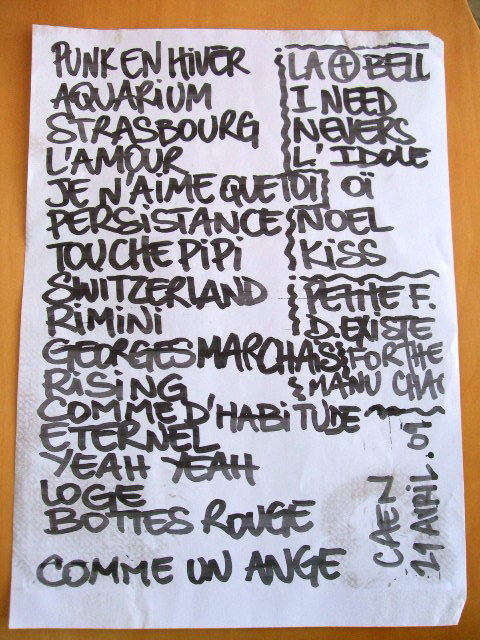 PUNK EN HIVER
AQUARIUM
STRASBOURG
L'AMOUR
JE N'AIME QUE TOI
PERSISTANCE
TOUCHE PIPI
SWITZERLAND
RIMINI
GEORGES MARCHAIS
RISING
COMME D'HABITUDE
ETERNEL
YEAH YEAH
LOGE
BOTTES ROUGE
COMME UN ANGE
LA + BELL
I NEED
NEVERS
L'IDOLE
OÏ
NOEL
KISS
PETITE F.
D.EXISTE
FOR THE
MANU CHAO
CAEN
21 AVRIL. 09